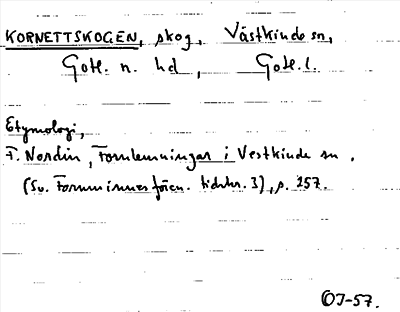 KORNETTSKOGEN, skog, Västkinde sn,
Gotl. n. hd, Gotl. l.
Etymologi,
F. Nordin, Fornlemningar i Vestkinde sn.
(Sv. Fornminnesfören. tidskr. 3), s. 257.
OJ-57.